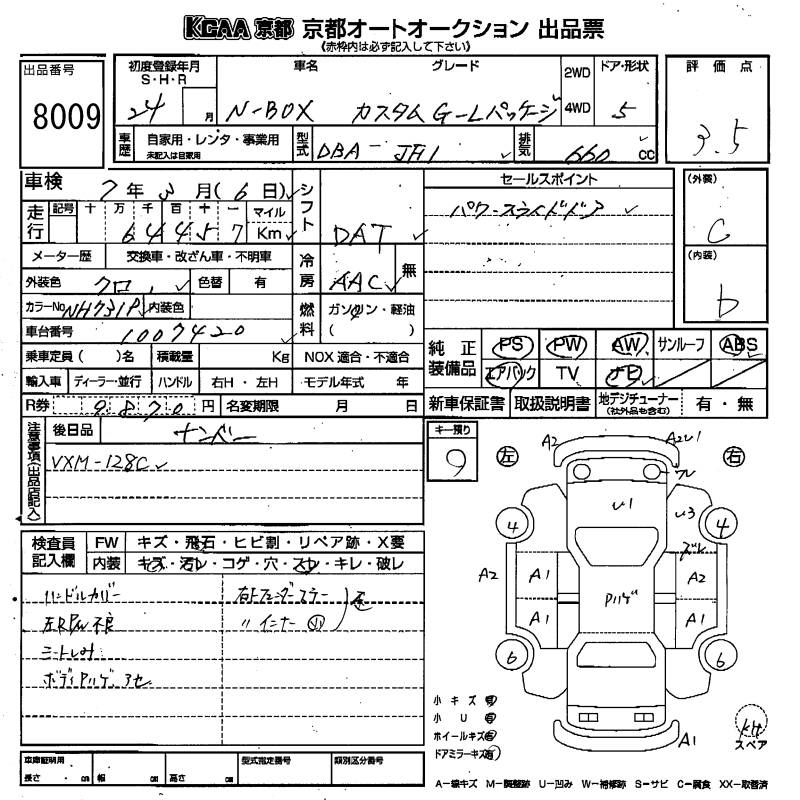 KCAA 京都 京都オートオークション 出品票
《赤枠内は必ず記入して下さい》
出品番号
8009
初度登録年月
S・H・R
24 月
車名
N-BOX
グレード
カスタム G-Lパッケージ
2WD
4WD
ドア・形状
5
評価点
3.5
車歴
自家用・レンタ・事業用
未記入は自家用
型式
DBA-JF1
排気
660 cc
車検
7年3月(6日)
シフト
DAT
セールスポイント
パワースライドドア
(外装)
C
(内装)
b
走行
記号 十 万 千 百 十 一 マイル
6 4 4 5 7 Km
メーター歴 交換車・改ざん車・不明車
冷房
AAC 無
外装色 クロ 色替 有
カラーNo NH731P 内装色
燃料
ガソリン・軽油
( )
車台番号 1007420
乗車定員( )名 積載量 Kg NOX適合・不適合
輸入車 ディーラー・並行 ハンドル 右H・左H モデル年式 年
R券 9870円 名変期限 月 日
純正装備品
PS PW AW サンルーフ ABS
エアバック TV ナビ
新車保証書 取扱説明書 地デジチューナー
(社外品も含む)
有・無
注意事項(出品店記入)
後日品 ナンバー
VXM-128C
キー預り
9
左
右
検査員記入欄
FW キズ・飛石・ヒビ割・リペア跡・X要
内装 キズ・汚レ・コゲ・穴・スレ・キレ・破レ
ハンドルカバー
左RPW不良
シートしみ
ボディPハゲ、
右Fフェンダーステー
〃 インナー
A2
A2U1
U1
U3
4
4
A2
A1
A2
Pハゲ
A1
A1
6
6
A1
小キズ 有
小U 有
ホイールキズ 有
ドアミラーキズ 有
スペア
A-線キズ M-調整跡 U-凹み W-補修跡 S-サビ C-腐食 XX-取替済
車庫証明用
長さ cm 幅 cm 高さ cm
型式指定番号
類別区分番号